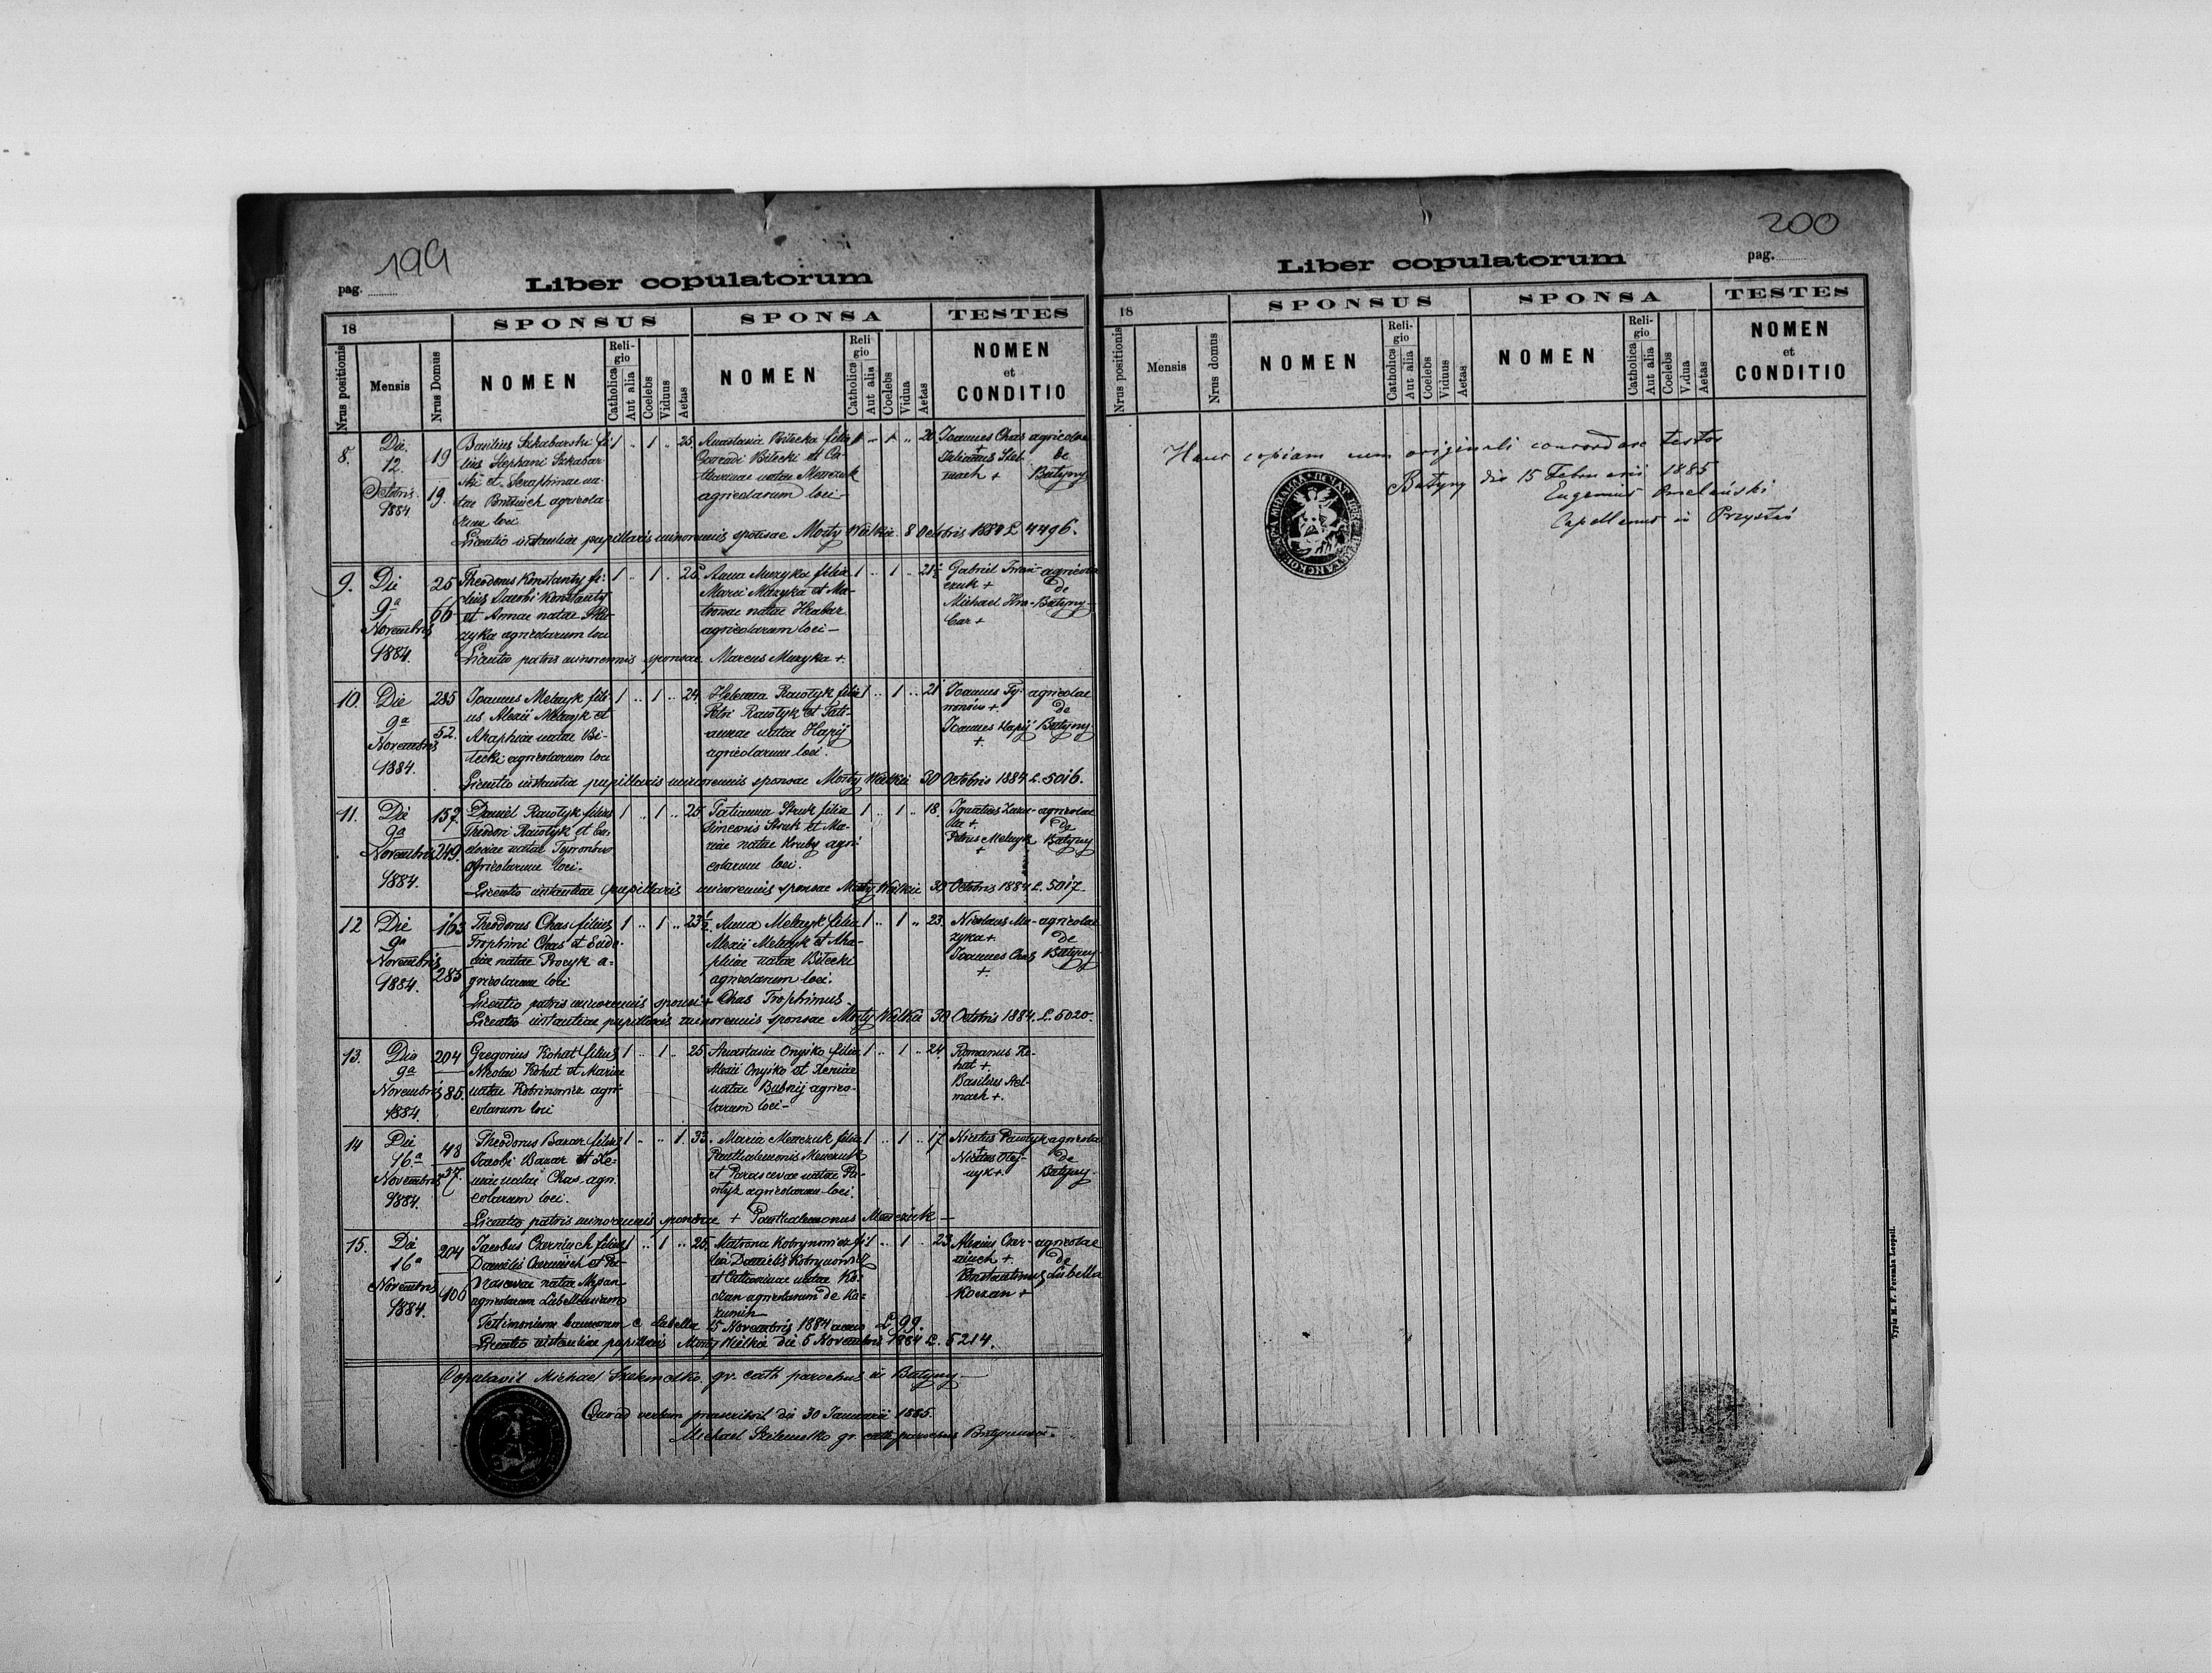 199
pag.
Liber copulatorum
18
SPONSUS
SPONSA
TESTES
Nrus positionis
Mensis
Nrus Domus
NOMEN
Religio
Catholica
Aut alia
Coelebs
Viduus
Aetas
NOMEN
Religio
Catholica
Aut alia
Coelebs
Vidua
Aetas
NOMEN
et
CONDITIO
8. Die 12. Octobris 1884
19
19.
Basilius Szkabarski fi-
lius Stephani Szkabar-
ski et Seraphinae na-
tae agricola-
rum loci
1 .. 1 .. 25
Anastasia Bilecka filia
Conradi Bilecki et Ca-
tharinae natae Menczuk
agricolarum loci
1 .. 1 .. 20
Joannes Chas agricolae
+ de
Stel-
mach + Batyny
Licentio instantiae pupillaris minorennis sponsae Mosty Wielkie 8 Octobris 1884 L 4496.
9. Die 9a Novembris 1884.
25
66
Theodorus Konstanty fi-
lius Jacobi Konstanty
et Annae natae Mu-
zyka agricolarum loci
1 .. 1 .. 25
Anna Muzyka filia
Marci Muzyka et Ma-
tronae natae Hrabar
agricolarum loci
1 .. 1 .. 21½
Gabriel Iwan- agricolae
czuk + de
Michael Hra- Batyny
bar +
Licentio patris minorennis sponsae. Marcus Muzyka +.
10. Die 9a Novembris 1884.
285
52.
Joannes Melnyk fili-
us Alexii Melnyk et
Ahaphiae natae Bi-
lecki agricolarum loci
1 .. 1 .. 24.
Helenna Rawlyk filia
Petri Rawlyk et Tati-
annae natae Hapij
agricolarum loci.
1 .. 1 .. 21
Joannes Ty- agricolae
+ de
Joannes Hapij Batyny
+
Licentio instantiae pupillaris minorennis sponsae Mosty Wielkie 30 Octobris 1884. L. 5016.
11. Die 9a Novembris 1884.
157.
249.
Daniel Rawlyk filius
Theodori Rawlyk et Eu-
dociae natae
agricolarum loci.
1 .. 1 .. 25
Tatianna Struk filia
Simeonis Struk et Ma-
riae natae Kruby agri-
colarum loci.
1 .. 1 .. 18.
Ignatius agricolae
+ de
Petrus Melnyk Batyny
+
Licentio instantiae pupillaris minorennis sponsae Mosty Wielkie 30 Octobris 1884. L. 5017
12 Die 9a Novembris 1884.
163
285
Theodorus Chas filius
Trophimi Chas et Eudo-
ciae natae Procyk a-
gricolarum loci
1 .. 1 .. 23½
Anna Melnyk filia
Alexii Melnyk et Aha-
phiae natae Bilecki
agricolarum loci.
1 .. 1 .. 23.
Nicolaus Mu- agricolae
zyka + de
Joannes Chas Batyny
+
Licentio patris minorennis sponsi + Chas Trophimus.
Licentio instantiae pupillaris minorennis sponsae Mosty Wielkie 30 Octobris 1884. L. 5020.
13. Die 9a Novembris 1884.
204
85.
Gregorius Kohut filius
Nicolai Kohut et Mariae
natae Kobrinowicz agri-
colarum loci
1 .. 1 .. 25
Anastasia Onysko filia
Alexii Onysko et Xeniae
natae Bubnij agrico-
larum loci
1 .. 1 .. 24.
Romanus Ko-
hut +.
Basilius Stel-
mach +.
14 Die 16a Novembris 1884.
48
37.
Theodorus Bazar filius
Jacobi Bazar et Xe-
niae natae Chas agri-
colarum loci.
1 .. .. 1. 33.
Maria Menczuk filia
Panthalemonis Menczuk
et Parascevae natae
agricolarum loci.
1 .. 1 .. 17.
agricolae
de
+. Batyny
Licentio patris minorennis sponsae + Panthalemonus Menczuk
15. Die 16a Novembris 1884.
204
106
Jacobus Czerniuch filius
Danielis Czerniuch et Pa-
rascevae natae
agricolarum Lubellensium
1 .. 1 .. 25.
Matrona Kobrynowicz fi-
lia Danielis Kobrynowicz
et Catharinae natae Ko-
czan agricolarum de Ka-
zumin
1 .. 1 .. 23
Alexius Czer- agricolae
niuch + de
Constantinus Lubella
Koczan +
Testimonium bannorum e Lubella 15 Novembris 1884 anno L 99.
Licentio instantiae pupillaris Mosty Wielkie die 5 Novembris 1884 L. 5214.
Copulavit Michael gr. cath parochus in Batyny
Quoad verbum praescribsit die 30 Januarii 1885.
Michael gr. cath parochus
200
pag.
Liber copulatorum
18
SPONSUS
SPONSA
TESTES
Nrus positionis
Mensis
Nrus domus
NOMEN
Religio
Catholica
Aut alia
Coelebs
Viduus
Aetas
NOMEN
Religio
Catholica
Aut alia
Coelebs
Vidua
Aetas
NOMEN
et
CONDITIO
Hanc copiam cum originali concordare testor
Batyny die 15 Februarii 1885
Eugenius Omelański
Capellanus in Przystań
Typis M. F. Poremba Leopoli.